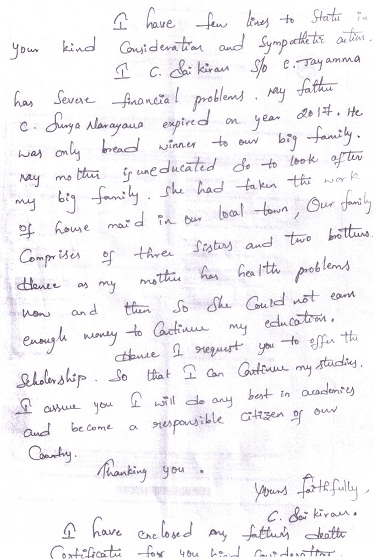 I have few lines to State in
your kind Consideration and Sympathetic action.
I C. Sai kiran S/o C. Jayamma
has Severe financial problems. my father
C. Surya Narayana expired on year 2017. He
was only bread winner to our big family.
my mother is uneducated So to look after
my big family. She had taken the work
of house maid in our local town, Our family
Comprises of three Sisters and two brothers.
Hence as my mother has health problems
now and then So She Could not earn
enough money to Continue my education.
Hence I request you to offer the
Scholership. So that I Can Continue my studies.
I assure you I will do my best in academics
and become a responsible Citizen of our
Country.
Thanking you.
Yours faithfully,
C. Sai kiran.
I have enclosed my father's death
Certificate for you kind Consideration.